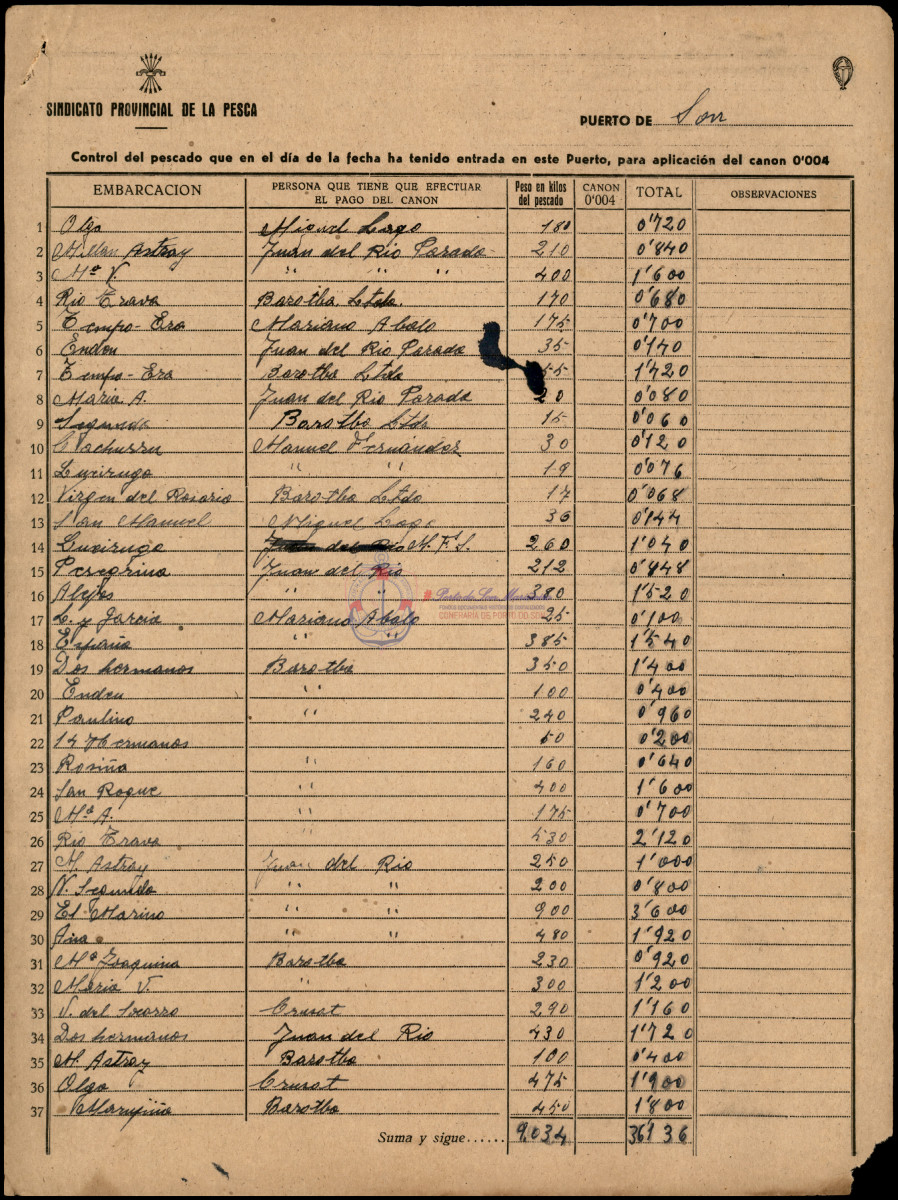 SINDICATO PROVINCIAL DE LA PESCA
PUERTO DE Son
Control del pescado que en el día de la fecha ha tenido entrada en este Puerto, para aplicación del canon 0'004
EMBARCACION PERSONA QUE TIENE QUE EFECTUAR EL PAGO DEL CANON Peso en kilos del pescado CANON 0'004 TOTAL OBSERVACIONES
1 Olga Miguel Lago 180 0'720
2 Millan Astray Juan del Rio Parada 210 0'840
3 Mª V. " " " 400 1'600
4 Rio Trava Barotba Ltda. 170 0'680
5 Tempo-Era Mariano Abalo 175 0'700
6 Enden Juan del Rio Parada 35 0'140
7 Tempo-Era Barotba Ltda 55 1'420
8 Maria A. Juan del Rio Parada 20 0'080
9 Segunda Barotba Ltda 15 0'060
10 Cachurru Manuel Fernández 30 0'120
11 Lucirugo " " 19 0'076
12 Virgen del Rosario Barotba Ltda 17 0'068
13 San Manuel Miguel Lago 36 0'144
14 Lucirugo Juan del Rio M. F. S. 260 1'040
15 Peregrina Juan del Rio 212 0'848
16 Alejos " " 380 1'520
17 L. y Garcia Mariano Abalo 25 0'100
18 España " " 385 1'540
19 Dos hermanos Barotba 350 1'400
20 Enden " 100 0'400
21 Paulino " 240 0'960
22 14 Hermanos 50 0'200
23 Rosiña " 160 0'640
24 San Roque " 400 1'600
25 Mª A. " 175 0'700
26 Rio Trava " 530 2'120
27 M. Astray Juan del Rio 250 1'000
28 N. Segunda " " 200 0'800
29 El Marino " " 900 3'600
30 Ana " " 480 1'920
31 Mª Joaquina Barotba 230 0'920
32 Maria V. " 300 1'200
33 V. del Socorro Crusat 290 1'160
34 Dos hermanos Juan del Rio 430 1'720
35 M. Astray Barotba 100 0'400
36 Olga Crusat 475 1'900
37 Maruxiña Barotba 450 1'800
Suma y sigue...... 9.034 36'136